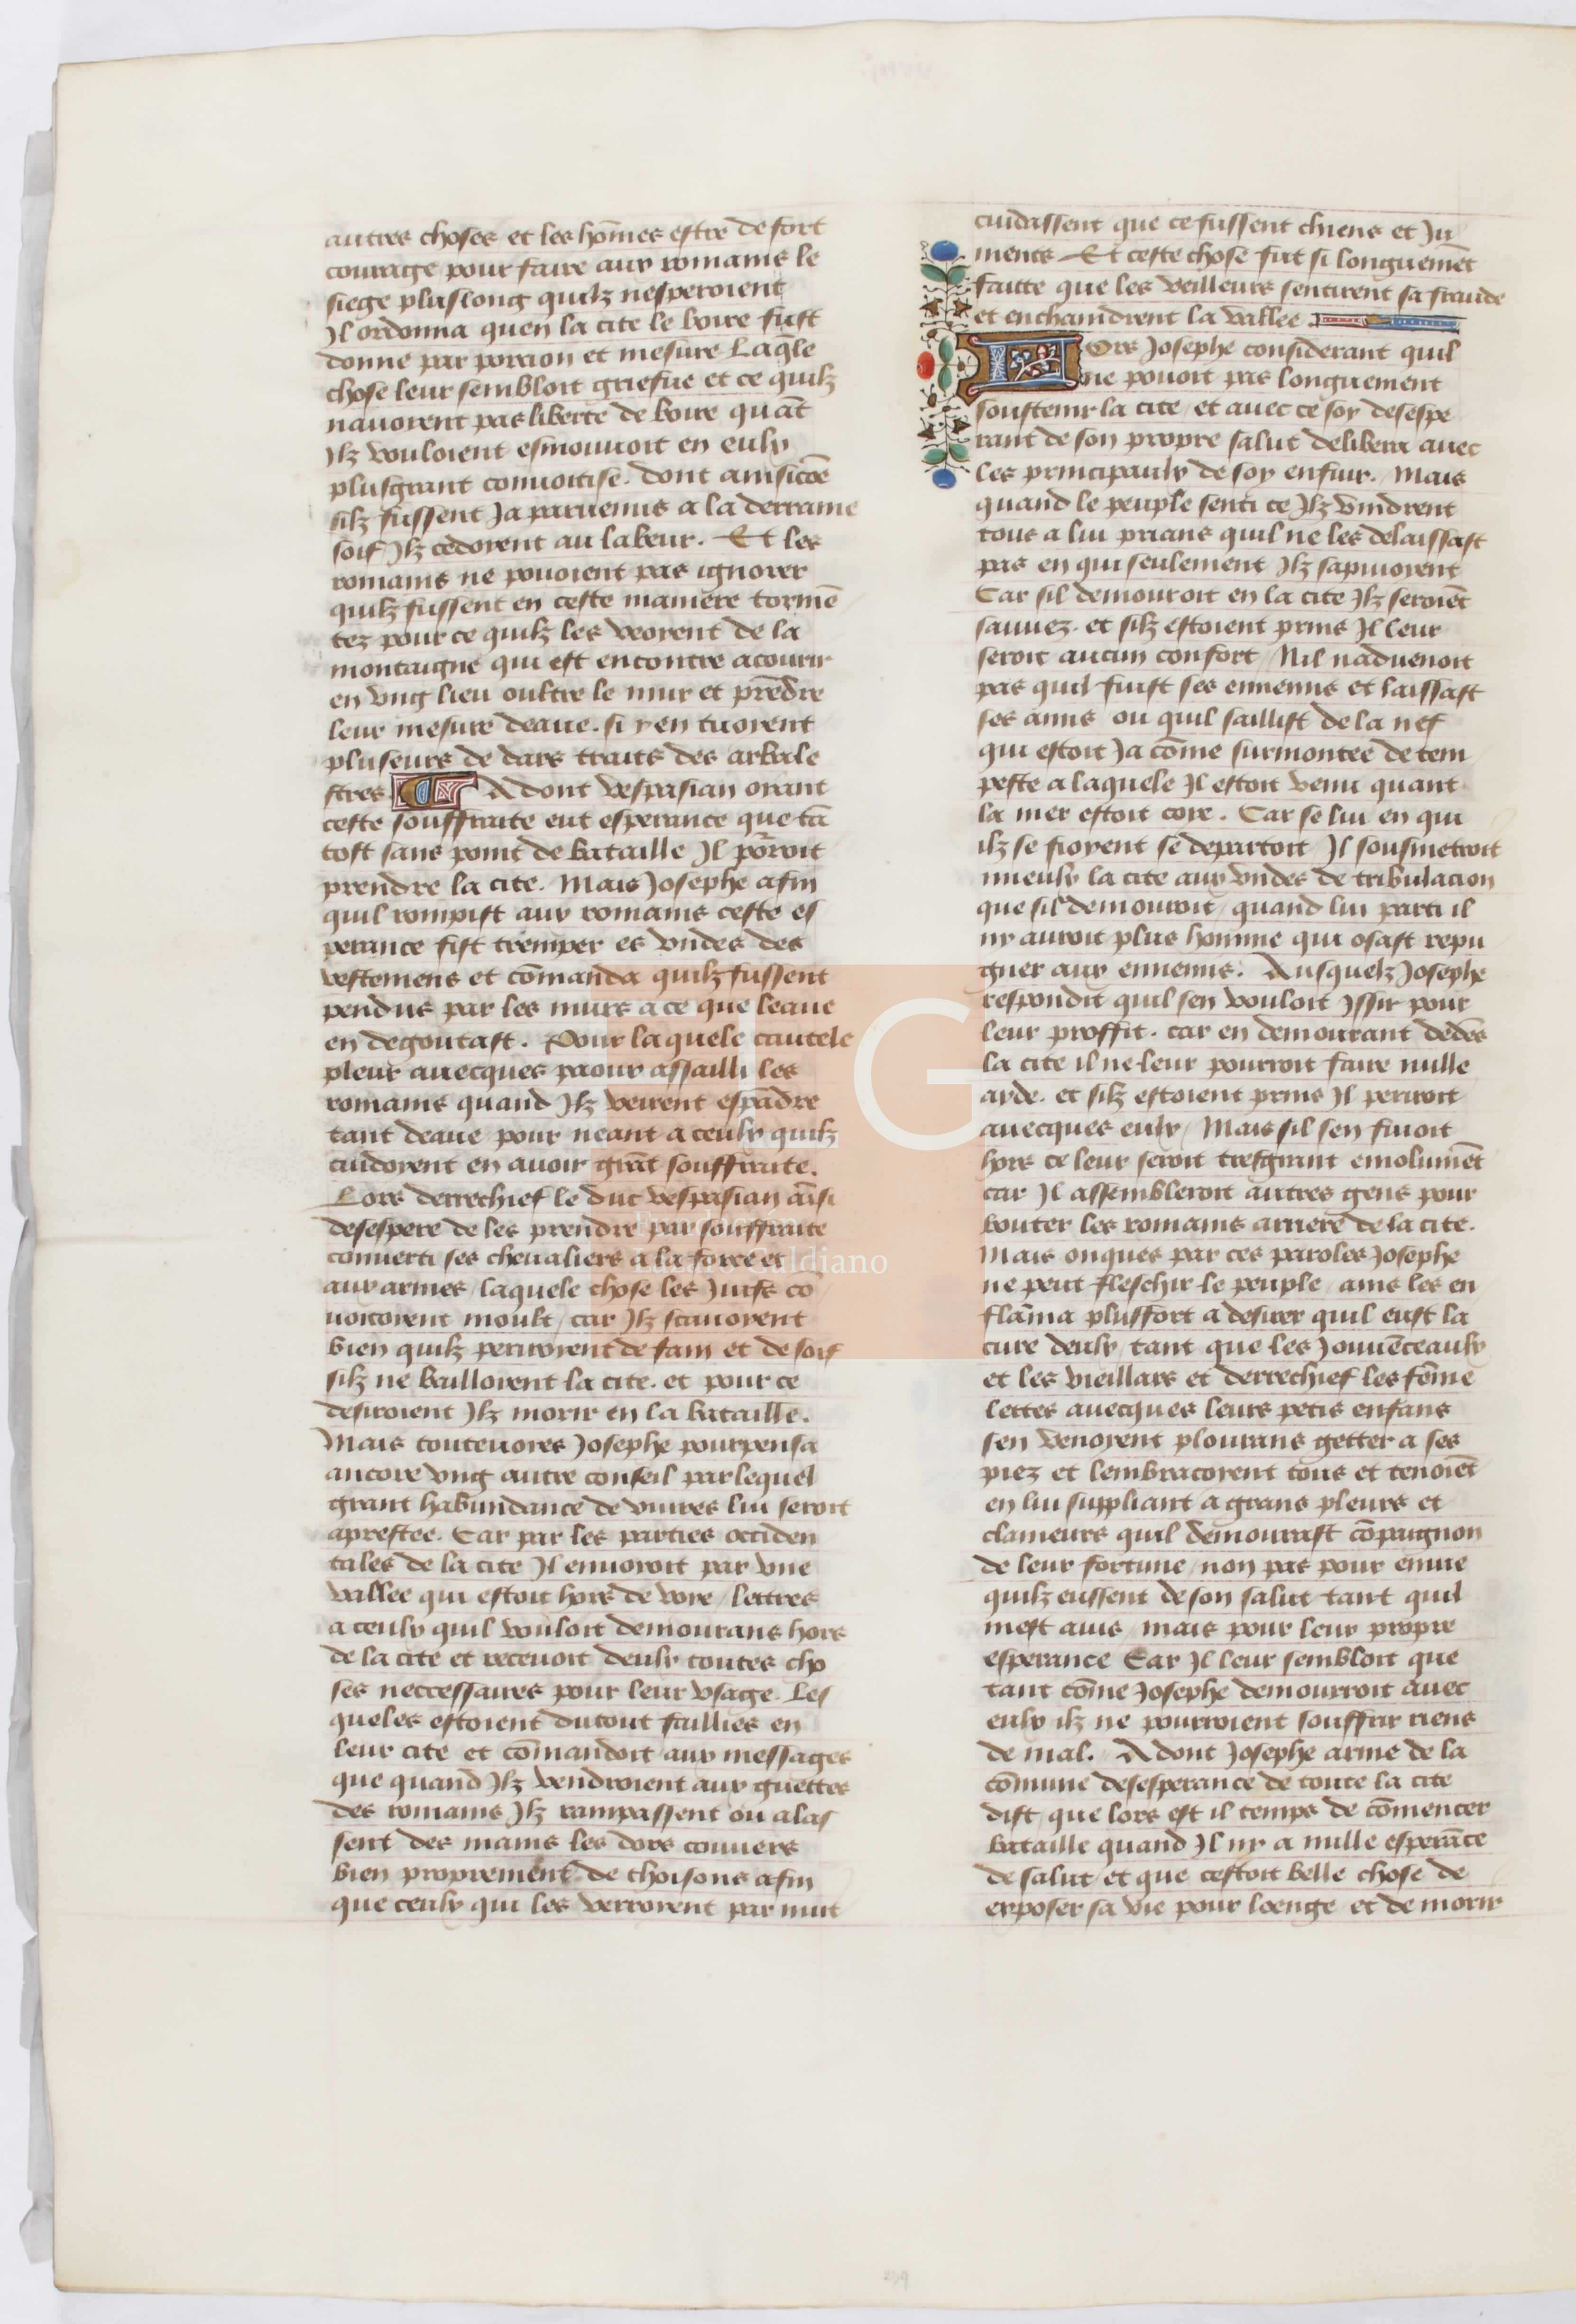 autres choses et les hōmes estre de fort
courage pour faire aux romains le
siege pluslong quilz nesperoient
Il ordonna quen la cite le boire fust
donne par porcion et mesure Laq̄le
chose leur sembloit griefue et ce quilz
nauoient pas liberte de boire quāt
Ilz vouloient esmouuoit en eulx
plusgrant conuoitise. dont ainsicōe
silz fussent Ja paruenus a la derraine
soif Ilz cedoient au labeur. Et les
romains ne pouoient pas ignorer
quilz fussent en ceste maniere tormē
tez pour ce quilz les veoyent de la
montaigne qui est encontre acourir
en vng lieu oultre le mur et prēdre
leur mesure deaue. si y en tuoyent
pluseurs de dars traits des arbale
stres. Adont vespasian oyant
ceste souffraite eut esperance que tā
tost sans point de bataille Il porroit
prendre la cite. Mais Josephe afin
quil rompist aux romains ceste es
perance fist tremper es vndes des
vestemens et cōmanda quilz fussent
pendus par les murs a ce que leaue
en degoutast. Pour laquele cautele
pleur auecques paour assailli les
romains quand Ilz veirent espādre
tant deaue pour neant a ceulx quilz
cuidoyent en auoir grāt souffraite.
Lors derrechief le duc vespasian aīsi
desespere de les prendre par souffraite
conuerti ses cheualiers a la force et
aux armes / laquele chose les Juifs cō
uoitoyent moult / car Ilz scauoyent
bien quilz periroyent de fain et de soif
silz ne bailloyent la cite. et pour ce
desiroient Ilz morir en la bataille.
Mais touteuoies Josephe pourpensa
ancore vng autre conseil par lequel
grant habundance de viures lui seroit
aprestee. Car par les parties occiden
tales de la cite Il enuoyoit par vne
vallee qui estoit hors de voye / lettres
a ceulx quil vouloit demourans hors
de la cite et receuoit deulx toutes cho
ses neccessaires pour leur vsage. Les
queles estoient dutout faillies en
leur cite et cōmandoit aux messages
que quand Ilz vendroient aux guettes
des romains Ilz rampassent ou alas
sent des mains les dors couuers
bien proprement de thoisons afin
que ceulx qui les verroyent par nuit
cuidassent que ce fussent chiens et Ju
mens Et ceste chose fut si longuemēt
faitte que les veilleurs sentirent sa fraude
et enchaindrent la vallee.
Lors Josephe considerant quil
ne pouoit pas longuement
soustenir la cite / et auec ce soy desespe
rant de son propre salut delibera auec
les principaulx de soy enfuir. Mais
quand le peuple senti ce Ilz vindrent
tous a lui prians quil ne les delaissast
pas en qui seulement Ilz sapuioyent
Car sil demouroit en la cite Ilz seroiēt
sauuez. et silz estoient prins Il leur
seroit aucun confort / Nil naduenoit
pas quil fuist ses ennemis et laissast
ses amis ou quil saillist de la nef
qui estoit Ja cōme surmontee de tem
peste a laquele Il estoit venu quant
la mer estoit coye. Car se lui en qui
ilz se fioyent se departoit Il sousmetroit
mieulx la cite aux vndes de tribulacion
que sil demouroit / quand lui parti il
ny auroit plus homme qui osast repu
gner aux ennemis. Ausquelz Josephe
respondit quil sen vouloit yssir pour
leur proffit. car en demourant dedēs
la cite il ne leur pourroit faire nulle
ayde. et silz estoient prins Il periroit
auecques eulx / Mais sil sen fuioit
hors ce leur seroit tresgrant emolumēt
car Il assembleroit autres gens pour
bouter les romains arriere de la cite.
Mais onques par ces paroles Josephe
ne peut fleschir le peuple / ains les en
flāma plusfort a desirer quil eust la
cure deulx / tant que les Jouuēceaulx
et les vieillars et derrechief les fēme
lettes auecques leurs petis enfans
sen venoyent plourans getter a ses
piez et lembracoyent tous et tenoiēt
en lui suppliant a grans pleurs et
clameurs quil demourast cōpaignon
de leur fortune / non pas pour enuie
quilz eussent de son salut tant quil
mest auis / mais pour leur propre
esperance Car Il leur sembloit que
tant cōme Josephe demourroit auec
eulx ilz ne pourroient souffrir riens
de mal. Adont Josephe arme de la
cōmune desesperance de toute la cite
dist que lors est il temps de cōmencer
bataille quand Il ny a nulle esperāce
de salut / et que cestoit belle chose de
exposer sa vie pour loenge et de morir
LG
Lázaro Galdiano